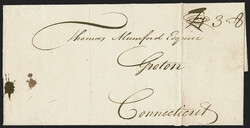 3-8
Thomas Mumford Esquire
Groton
Connecticut